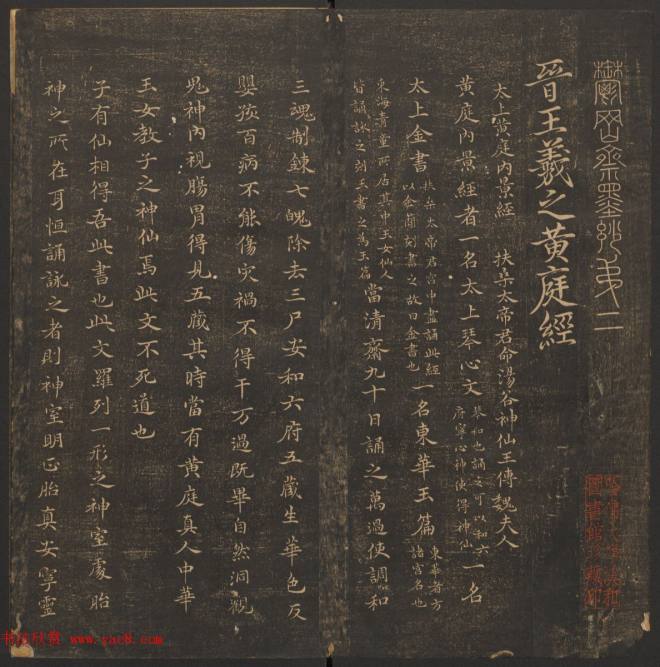 鬱岡齋墨妙弟二
晉王羲之黃庭經
太上黃庭內景經 扶桒太帝君命湯谷神仙王傳魏夫人
黃庭內景經者一名太上琴心文 琴和也誦之可以和六府寧心神使得神仙 一名
太上金書 扶桒太帝君宮中盡誦此經以金簡刻書之故曰金書也 一名東華玉篇 東華者方諸宮名也
東海青童所居其中玉女仙人皆誦詠之刻玉書之為玉篇 當清齋九十日誦之萬過使調和
三魂制鍊七魄除去三尸安和六府五藏生華色反
嬰孩百病不能傷灾禍不得干万過既畢自然洞觀
鬼神內視腸胃得見五藏其時當有黃庭真人中華
玉女教子之神仙焉此文不死道也
子有仙相得吾此書也此文羅列一形之神室處胎
神之所在耳恒誦詠之者則神室明正胎真安寧靈
哈佛大學漢和圖書館珍藏印
书法欣赏 www.yac8.com